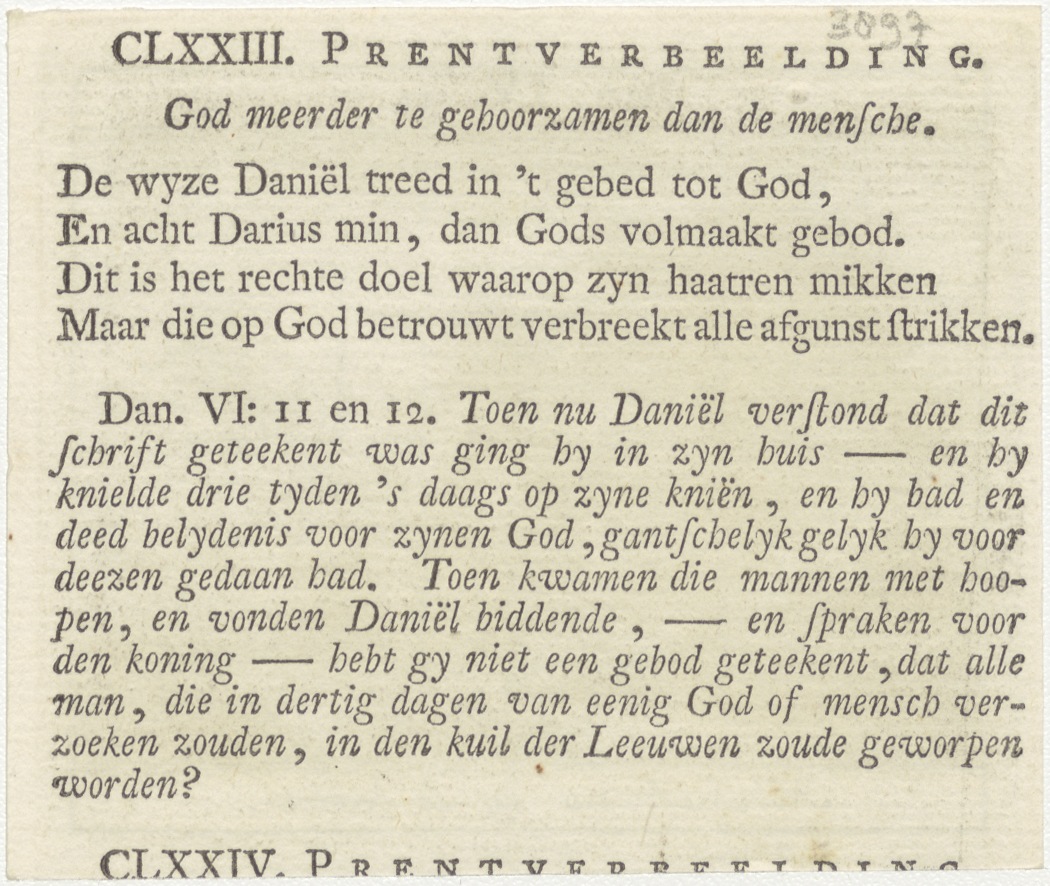 3097
CLXXIII. PRENTVERBEELDING.
God meerder te gehoorzamen dan de menſche.
De wyze Daniël treed in 't gebed tot God,
En acht Darius min, dan Gods volmaakt gebod.
Dit is het rechte doel waarop zyn haatren mikken
Maar die op God betrouwt verbreekt alle afgunst ſtrikken.
Dan. VI: 11 en 12. Toen nu Daniël verſtond dat dit
ſchrift geteekent was ging hy in zyn huis — en hy
knielde drie tyden 's daags op zyne kniën, en hy bad en
deed belydenis voor zynen God, gantſchelyk gelyk hy voor
deezen gedaan had. Toen kwamen die mannen met hoo-
pen, en vonden Daniël biddende, — en ſpraken voor
den koning — hebt gy niet een gebod geteekent, dat alle
man, die in dertig dagen van eenig God of mensch ver-
zoeken zouden, in den kuil der Leeuwen zoude geworpen
worden?
CLXXIV. PRENTVERBEELDING